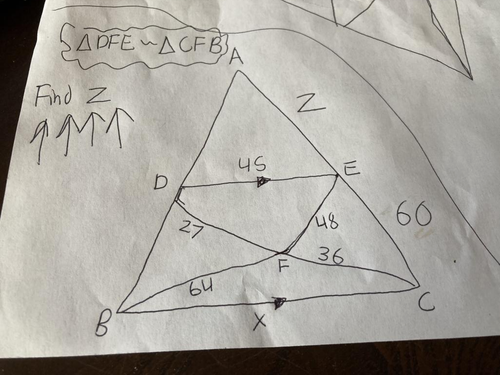 △DFE ~ △CFB
A
Find Z
Z
45
D
E
27
48
60
F
36
64
B
X
C